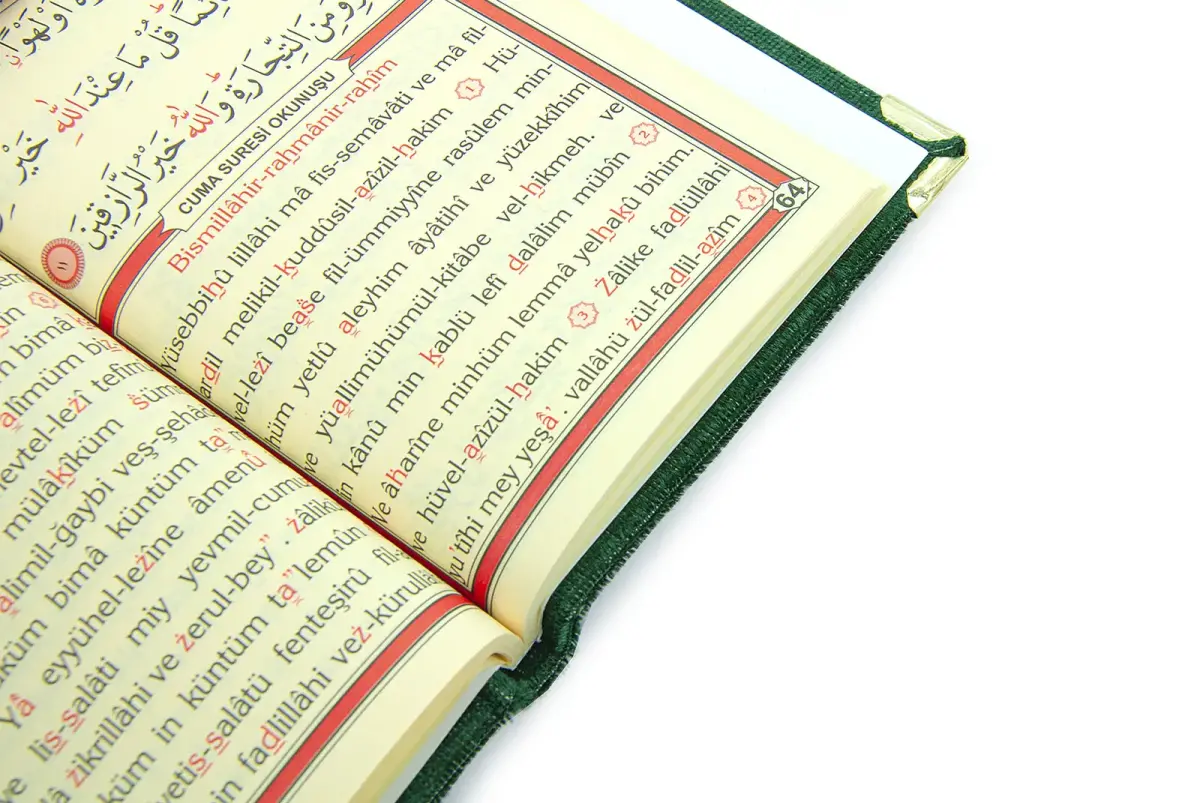 اَوْ لَهْوًا
قُلْ مَا عِنْدَ اللّٰهِ خَيْرٌ
وَمِنَ التِّجَارَةِ وَاللّٰهُ خَيْرُ الرَّازِقِينَ ١١
CUMA SURESİ OKUNUŞU
Bismillâhir-rahmânir-rahîm
Yüsebbihû lillâhi mâ fis-semâvâti ve mâ fil-
ardil melikil-kuddûsil-azîzil-hakim 1 Hü-
vel-leżî bease fil-ümmiyyîne rasûlem min-
hüm yetlû aleyhim âyâtihî ve yüzekkîhim
ve yüallimühümül-kitâbe vel-hikmeh. ve
in kânû min kablü lefî dalâlim mübîn 2
Ve âharîne minhüm lemmâ yelhakû bihim.
ve hüvel-azîzül-hakim 3 Żâlike fadlüllâhi
yu'tîhi mey yeşâ'. vallâhü żül-fadlil-azîm 4
64
bimâ
alimüm biz
mevtel-leżî tefirr
mülâkîküm sümm
alimil-ğaybi veş-şehâd
küm bimâ küntüm ta'
Yâ eyyühel-leżîne âmenû
lis-salâti miy yevmil-cumu
żikrillâhi ve żerul-bey'. żâlikü
küm in küntüm ta'lemûn
salâtü fenteşirû fil-
in fadlillâhi veż-kürullâ